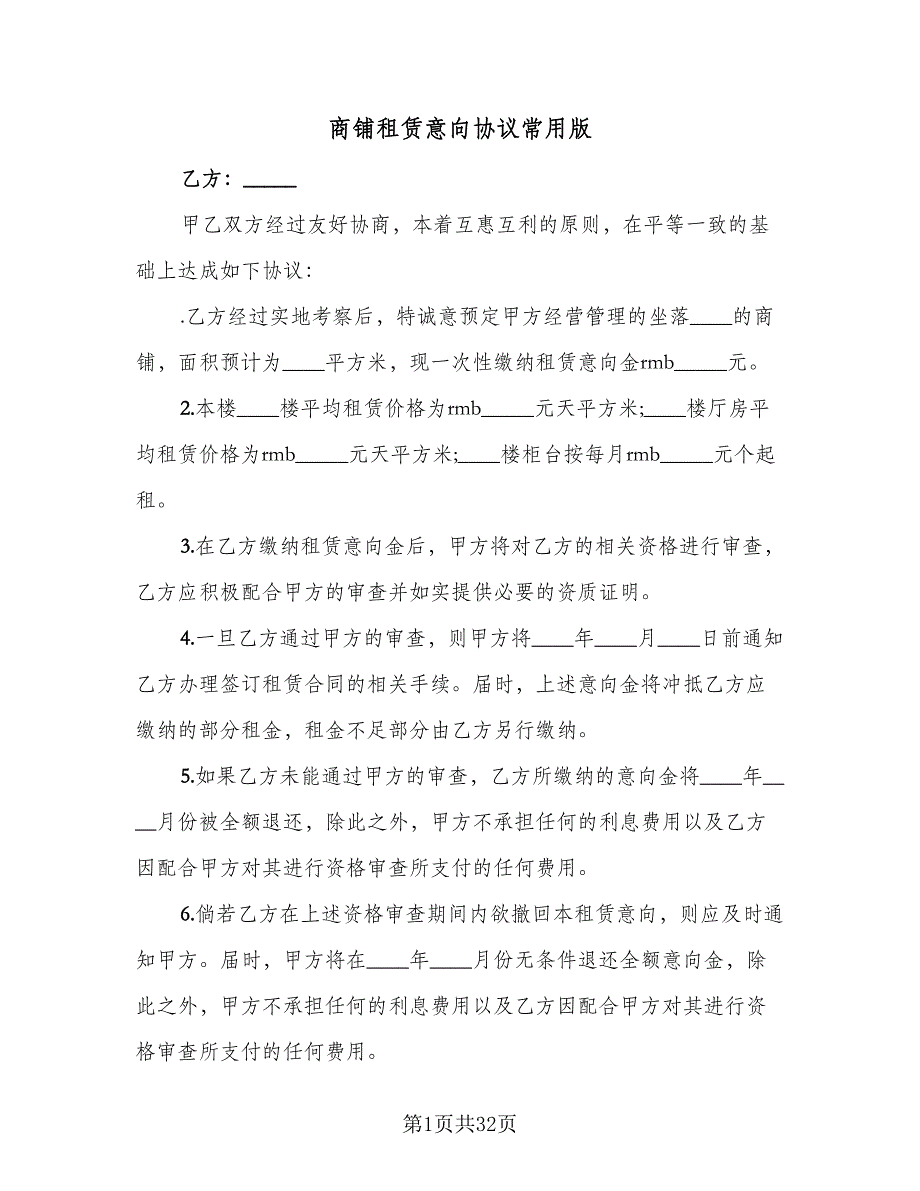 商铺租赁意向协议常用版
乙方：_____
甲乙双方经过友好协商，本着互惠互利的原则，在平等一致的基
础上达成如下协议：
.乙方经过实地考察后，特诚意预定甲方经营管理的坐落____的商
铺，面积预计为____平方米，现一次性缴纳租赁意向金rmb_____元。
2.本楼____楼平均租赁价格为rmb_____元天平方米;____楼厅房平
均租赁价格为rmb_____元天平方米;____楼柜台按每月rmb_____元个起
租。
3.在乙方缴纳租赁意向金后，甲方将对乙方的相关资格进行审查，
乙方应积极配合甲方的审查并如实提供必要的资质证明。
4.一旦乙方通过甲方的审查，则甲方将____年____月____日前通知
乙方办理签订租赁合同的相关手续。届时，上述意向金将冲抵乙方应
缴纳的部分租金，租金不足部分由乙方另行缴纳。
5.如果乙方未能通过甲方的审查，乙方所缴纳的意向金将____年__
__月份被全额退还，除此之外，甲方不承担任何的利息费用以及乙方
因配合甲方对其进行资格审查所支付的任何费用。
6.倘若乙方在上述资格审查期间内欲撤回本租赁意向，则应及时通
知甲方。届时，甲方将在____年____月份无条件退还全额意向金，除
此之外，甲方不承担任何的利息费用以及乙方因配合甲方对其进行资
格审查所支付的任何费用。
第1页共32页